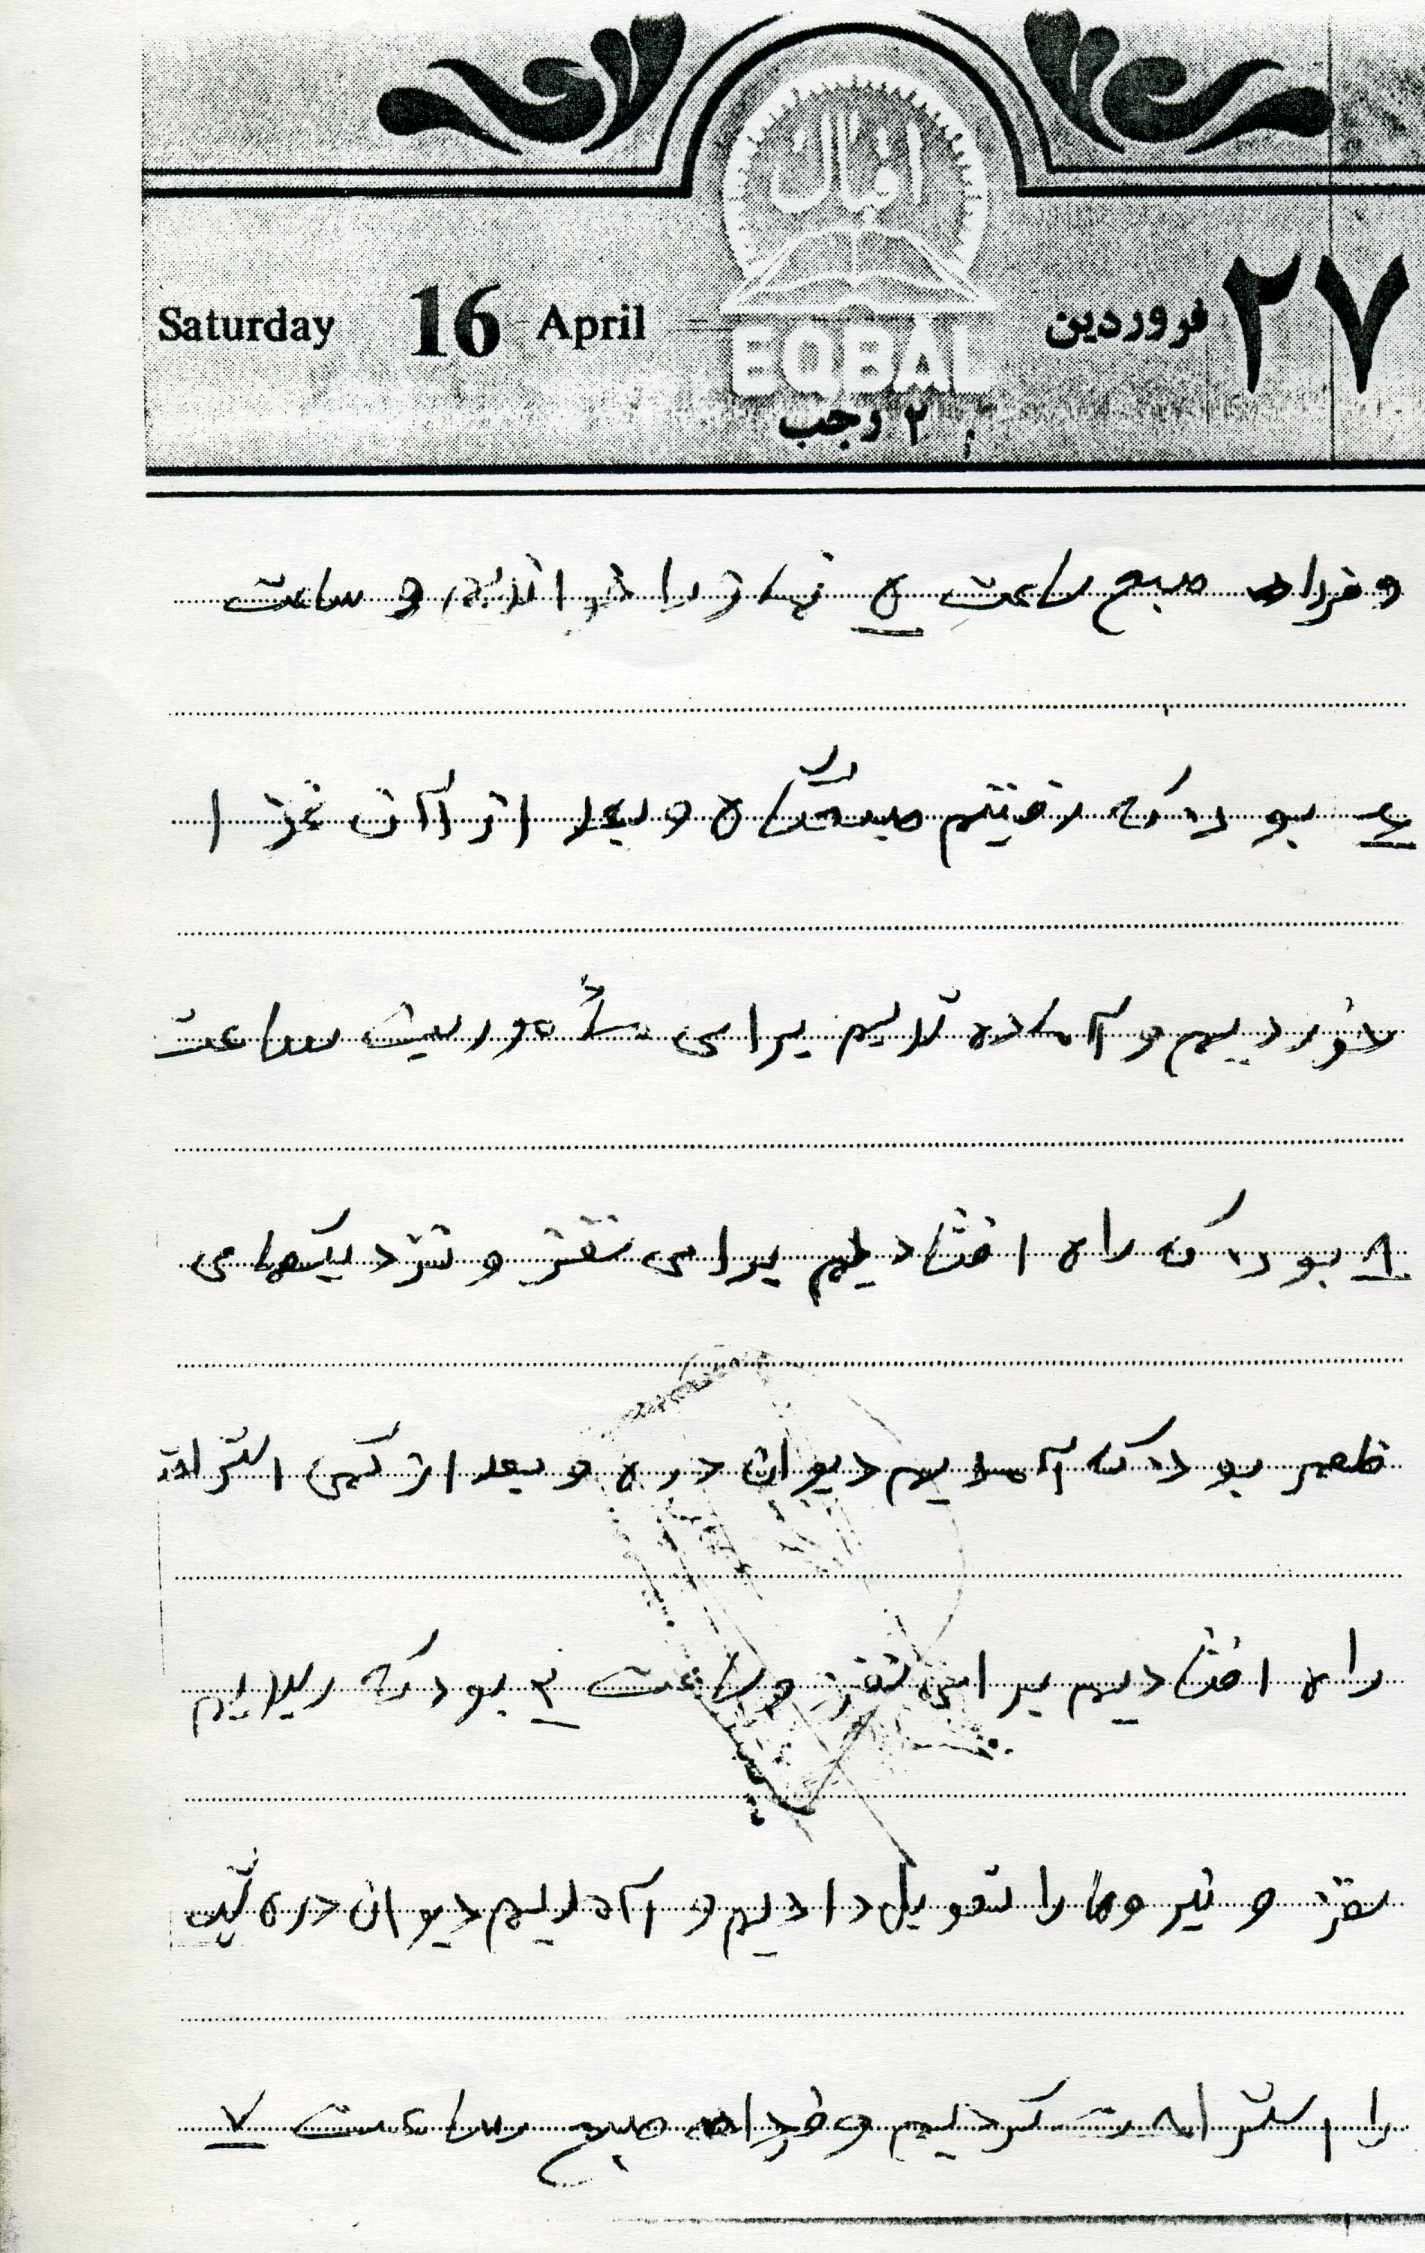 اقبال
Saturday 16 April
EQBAL
۲۷ فروردین
۲ رجب
و فردا صبح ساعت ۵ نماز را خواندیم و ساعت
۶ بود که رفتیم صبحگاه و بعد از آن غذا
خوردیم و آماده شدیم برای مأموریت ساعت
۸ بود که راه افتادیم برای سقز و نزدیکهای
ظهر بود که آمدیم دیوان دره و بعد از کمی استراحت
راه افتادیم برای سقز و ساعت ۳ بود که رسیدیم
سقز و نیروها را تحویل دادیم و آمدیم دیوان دره شب
را استراحت کردیم و فردا صبح ساعت ۷